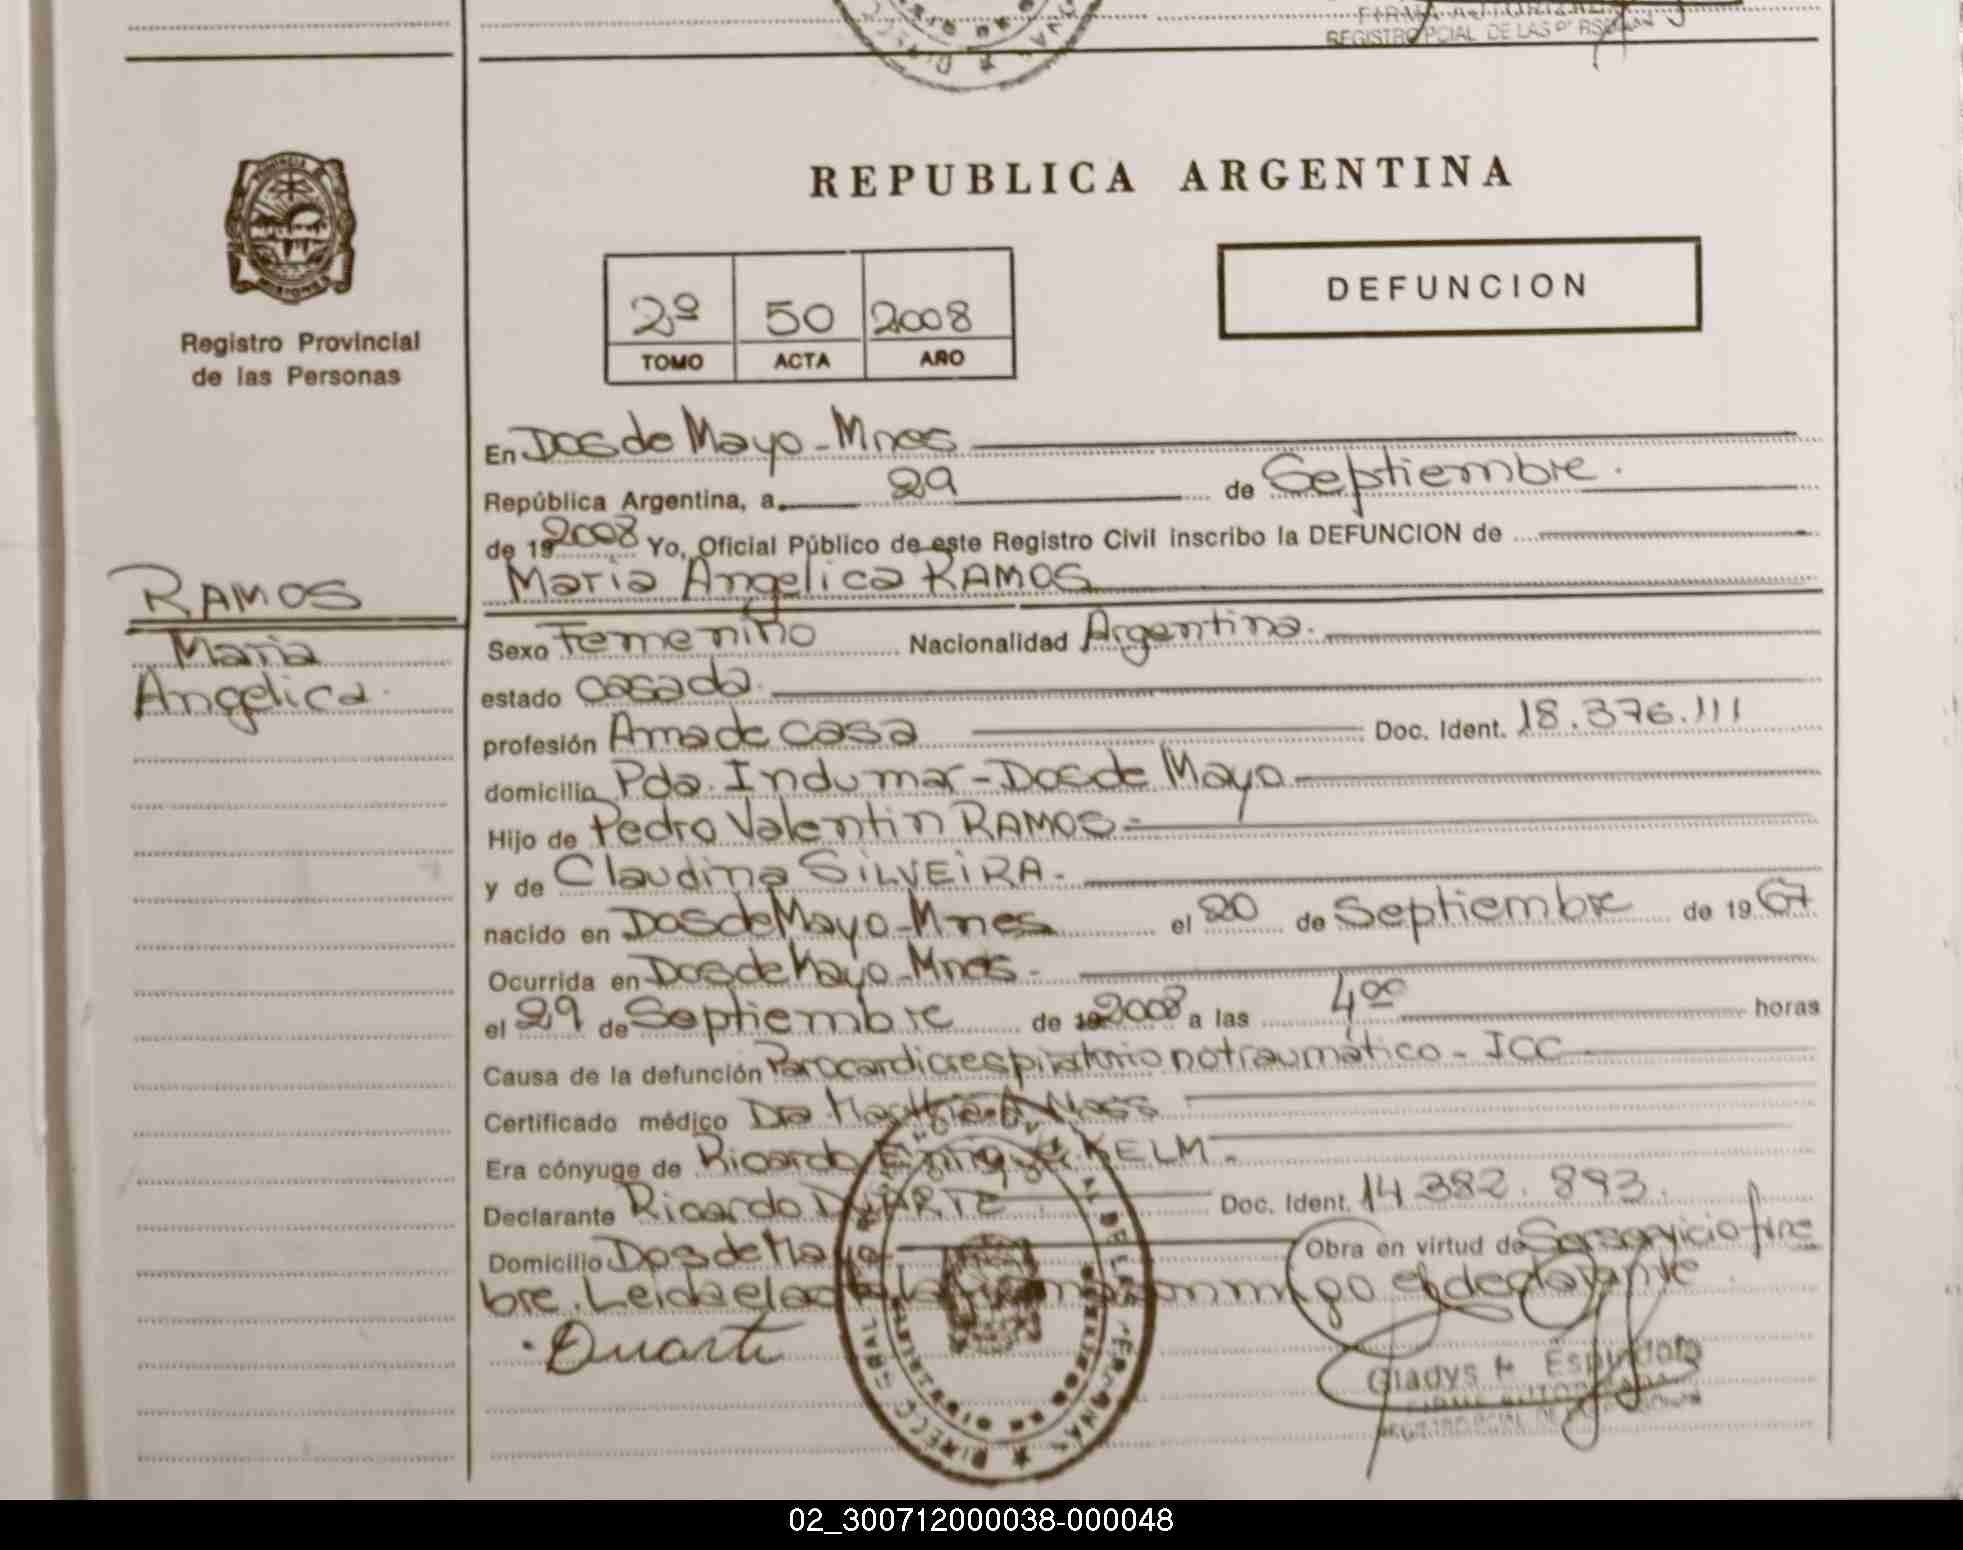 FIRMA AUTORIZADA
REGISTRO PCIAL DE LAS PERSONAS
REPUBLICA ARGENTINA
Registro Provincial
de las Personas
2º 50 2008
TOMO ACTA AÑO
DEFUNCION
En Dos de Mayo - Mnes
República Argentina, a 29 de Septiembre.
de 19 2008 Yo, Oficial Público de este Registro Civil inscribo la DEFUNCION de
RAMOS
Maria Angelica RAMOS
Maria
Angelica.
Sexo Femenino Nacionalidad Argentina.
estado casada.
profesión Ama de casa Doc. Ident. 18.376.111
domicilio Pda. Indumar - Dos de Mayo
Hijo de Pedro Valentin RAMOS -
y de Claudina SILVEIRA -
nacido en Dos de Mayo - Mnes el 20 de Septiembre de 19 67
Ocurrida en Dos de Mayo - Mnes -
el 29 de Septiembre de 19 2008 a las 4 00 horas
Causa de la defunción Parocardiorespiratorio no traumático - ICC
Certificado médico Dra
Era cónyuge de Ricardo Enrique KELM -
Declarante Ricardo DUARTE Doc. Ident. 14.382.893.
Domicilio Dos de Mayo Obra en virtud de Ser servicio fúne
bre. Leida el acta la firma conmigo el declarante.
Duarte
Gladys Espindola
FIRMA AUTORIZADA
REGISTRO PCIAL DE LAS PERSONAS
02_300712000038-000048